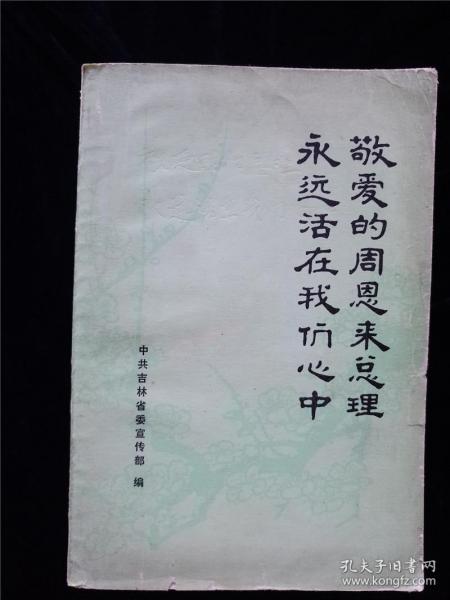 敬爱的周恩来总理
永远活在我们心中
中共吉林省委宣传部 编
孔夫子旧书网
www.kongfz.com